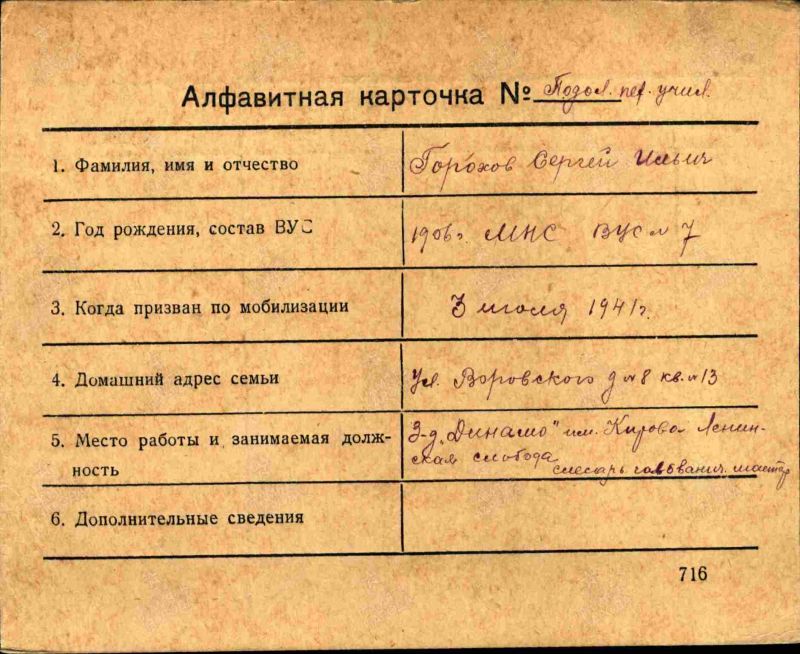 Алфавитная карточка № Подол. пех. учил.
1. Фамилия, имя и отчество Горохов Сергей Ильич
2. Год рождения, состав ВУС 1906г. МНС ВУС № 7
3. Когда призван по мобилизации 3 июля 1941г.
4. Домашний адрес семьи Ул. Воровского д № 8 кв. № 13
5. Место работы и занимаемая долж- З-д „Динамо" им. Кирова Ленин-
ность ская слобода слесарь гальванич. мастер
6. Дополнительные сведения
716